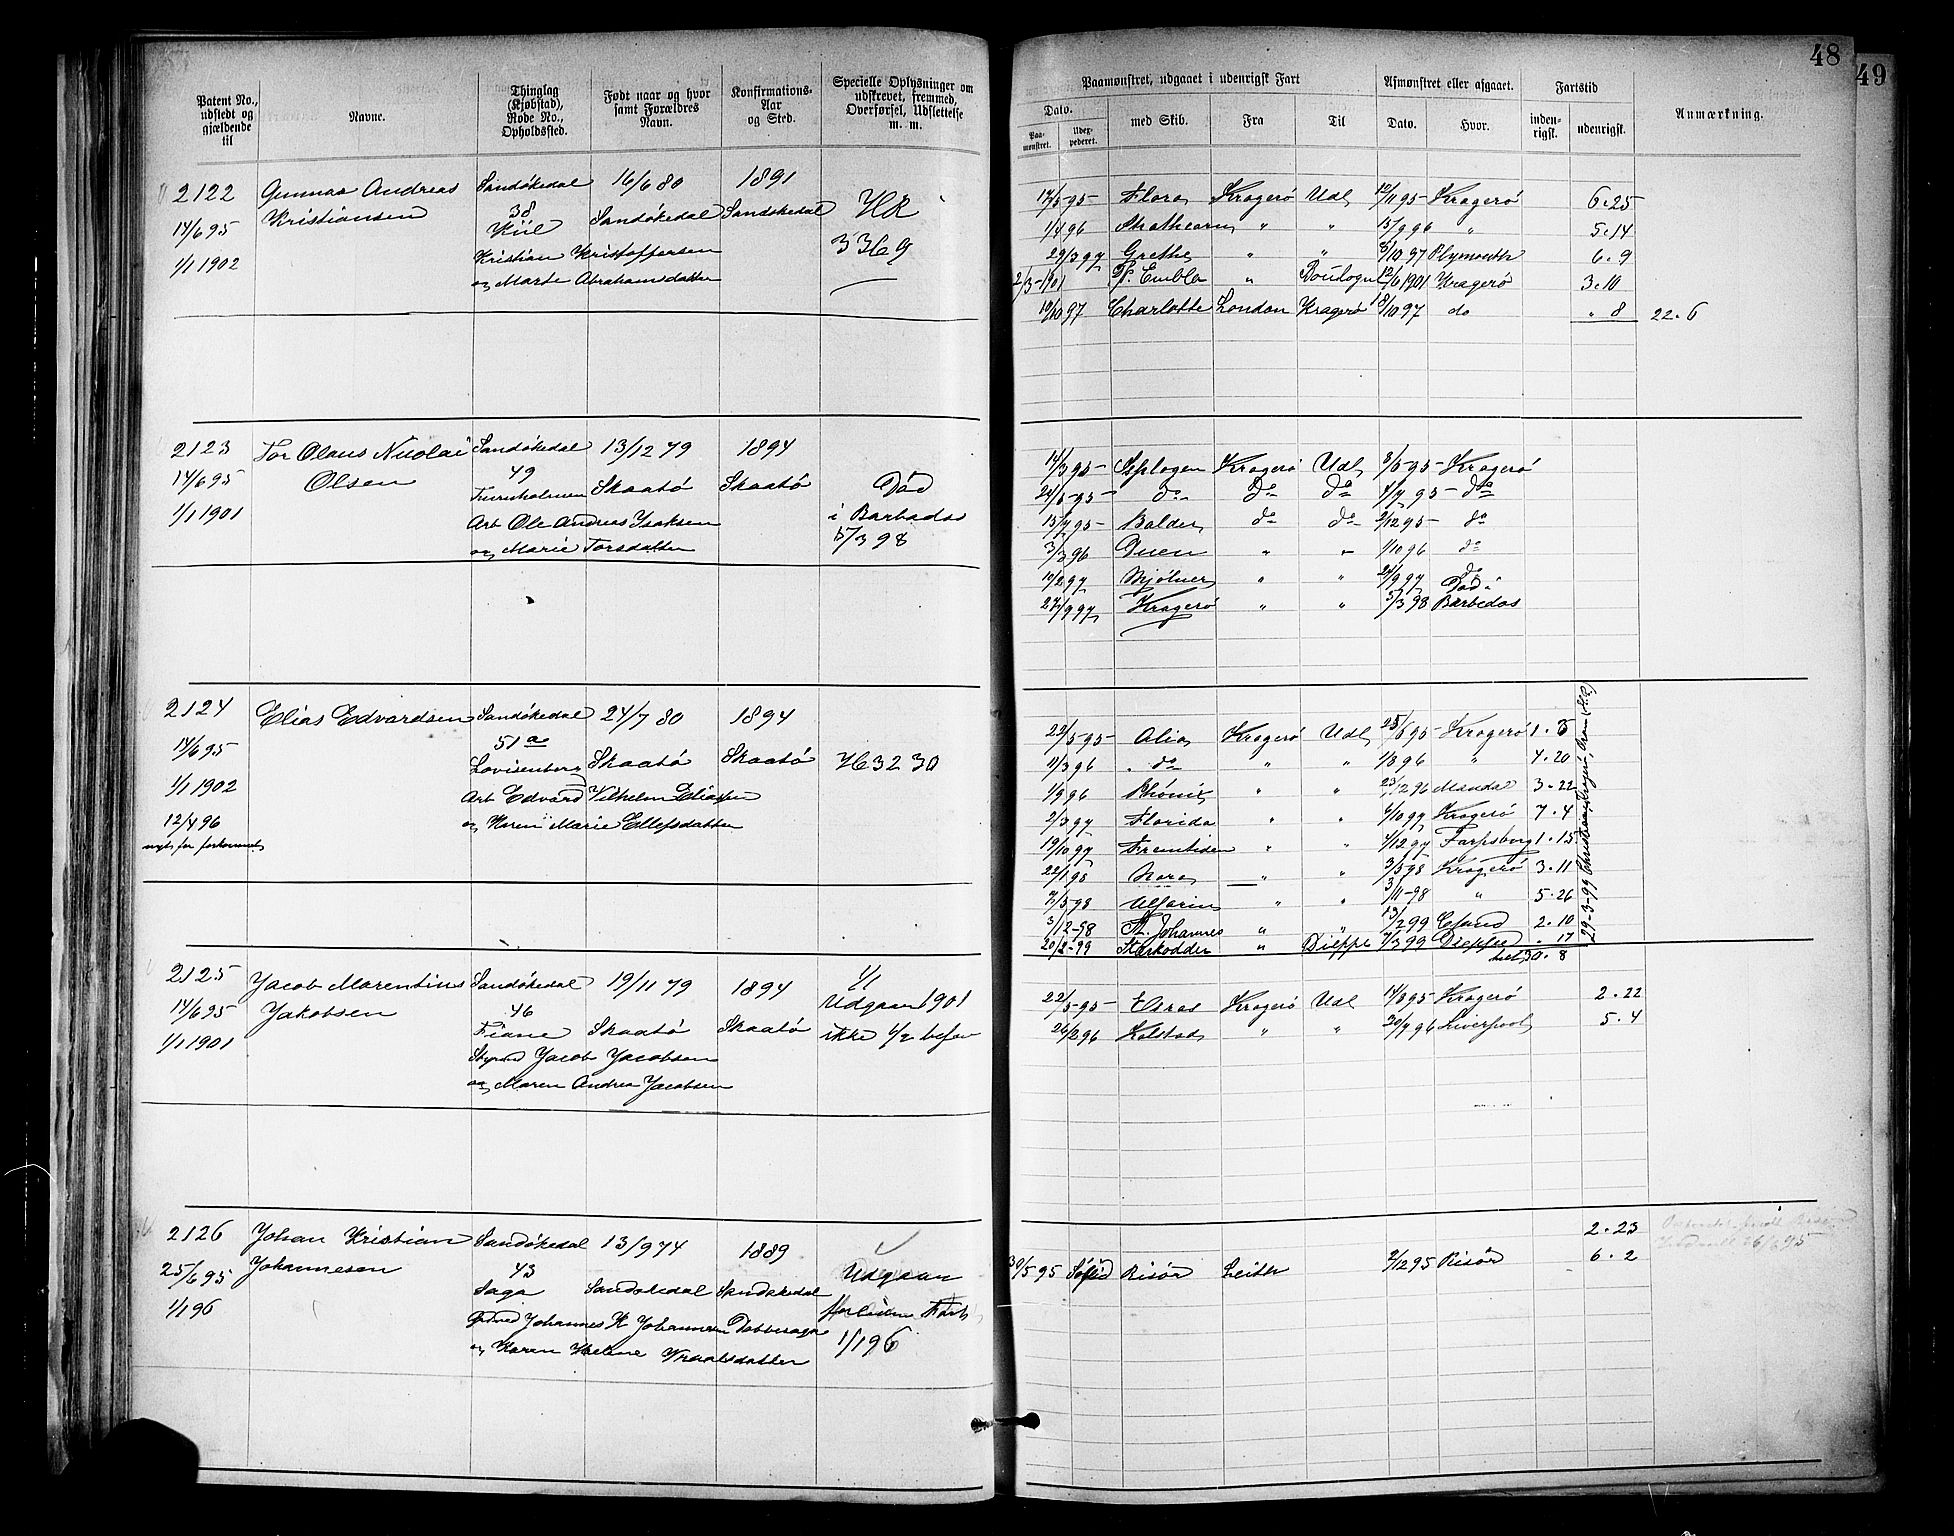 48
49
Patent No., udstedt og gjældende til
Navne.
Thinglag (Kjøbstad), Rode No., Opholdssted.
Født naar og hvor samt Forældres Navn.
Konfirmations-Aar og Sted.
Specielle Oplysninger om udskrevet, fremmed, Overførsel, Udslettelse m. m.
Paamønstret, udgaaet i udenrigsk Fart
Afmønstret eller afgaaet.
Fartstid
Anmærkning.
Dato.
Paa-mønstret.
Udex-pederet.
med Skib.
Fra
Til
Dato.
Hvor.
inden-rigsk.
udenrigsk.
2122 Gunnar Andreas Sandøkedal 16/6 80 1891
Kristiansen 38 Sandøkedal Sandøkedal HR
14/6 95 Kiil 3369
1/1 1902 Kristian Kristoffersen
og Marte Abrahamsdatter
14/5 95 Flora Kragerø Udl 12/11 95 Kragerø 6.25
1/4 96 Strathearn " " 15/9 96 " 5.14
29/3 97 Grethe " " 8/10 97 Plymouth 6.9
2/3-1901 Embla " Boulogne 12/6 1901 Kragerø 3.10
10/10 97 Charlotte London Kragerø 18/10 97 do " 8 22.6
2123 Tor Olaus Nicolai Sandøkedal 13/12 79 1894
14/6 95 Olsen 49 Skaatø Skaatø Død
1/1 1901 Arb Ole Andreas Isaksen i Barbados
og Marie Torsdatter 5/3 98
14/3 95 Asplogen Kragerø Udl 8/5 95 Kragerø
24/5 95 do do do 4/7 95 do
15/7 95 Balder do do 2/12 95 do
3/3 96 Duen " " 1/10 96 do
14/2 97 Mjølner " " 24/9 97 do
27/9 97 Kragerø " " 5/3 98 Død i Barbedos
2124 Elias Edvardsen Sandøkedal 24/7 80 1894
14/6 95 51a Skaatø Skaatø H 3230
1/1 1902 Lovisenberg
12/4 96 Arb Edvard Vilhelm Eliassen
nyt for forkommet og Karen Marie Ellefsdatter
22/5-95 Alia Kragerø Udl 25/6 95 Kragerø 1.3
11/3 96 do " " 1/8 96 " 4.20
1/9 96 Phønix " " 23/12 96 Mandal 3.22
2/3 97 Florida " " 6/10 97 Kragerø 7.4
19/10 97 Fremtiden " " 4/12 97 Sarpsborg 1.15
22/1 98 Nora " " 3/5 98 Kragerø 3.11
7/5 98 Alfarin " " 3/11-98 " 5.26
3/12-98 St. Johannes " " 13/2 99 Grund 2.10
20/2-99 Stærkodder " Dieppe 7/3 99 Dieppe " 17
30.8
29-3-99 Christian, Kragerø
2125 Jacob Marentius Sandøkedal 19/11 79 1894 1/1
14/6 95 Jakobsen 46 Udgaar 1901
1/1 1901 Fiane Skaatø Skaatø ikke 1/2 befar
Styrmd Jacob Jacobsen
og Maren Andrea Jacobsen
22/5-95 Ceres Kragerø Udl 14/8 95 Kragerø 2.22
26/2 96 Kalstad " " 30/7 96 Liverpool 5.4
2126 Johan Kristian Sandøkedal 13/9 74 1889
25/6 95 Johannesen 43 Udgaar
1/1 96 Saga Sandøkedal Sandøkedal
Johannes K Johannesen Dobbesaga 1/1 96
og Karen Helene Vraalsdatter
2.23
30/5 95 Søfrid Risør Leith 2/12 95 Risør 6.2